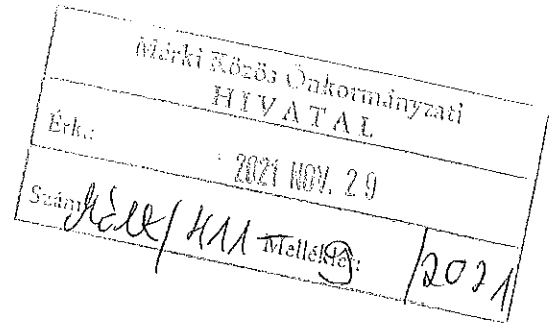 Márki Közös Önkormányzati
HIVATAL
Érk.:
2021 NOV. 29
Szám: /411-9 Melléklet: /2021